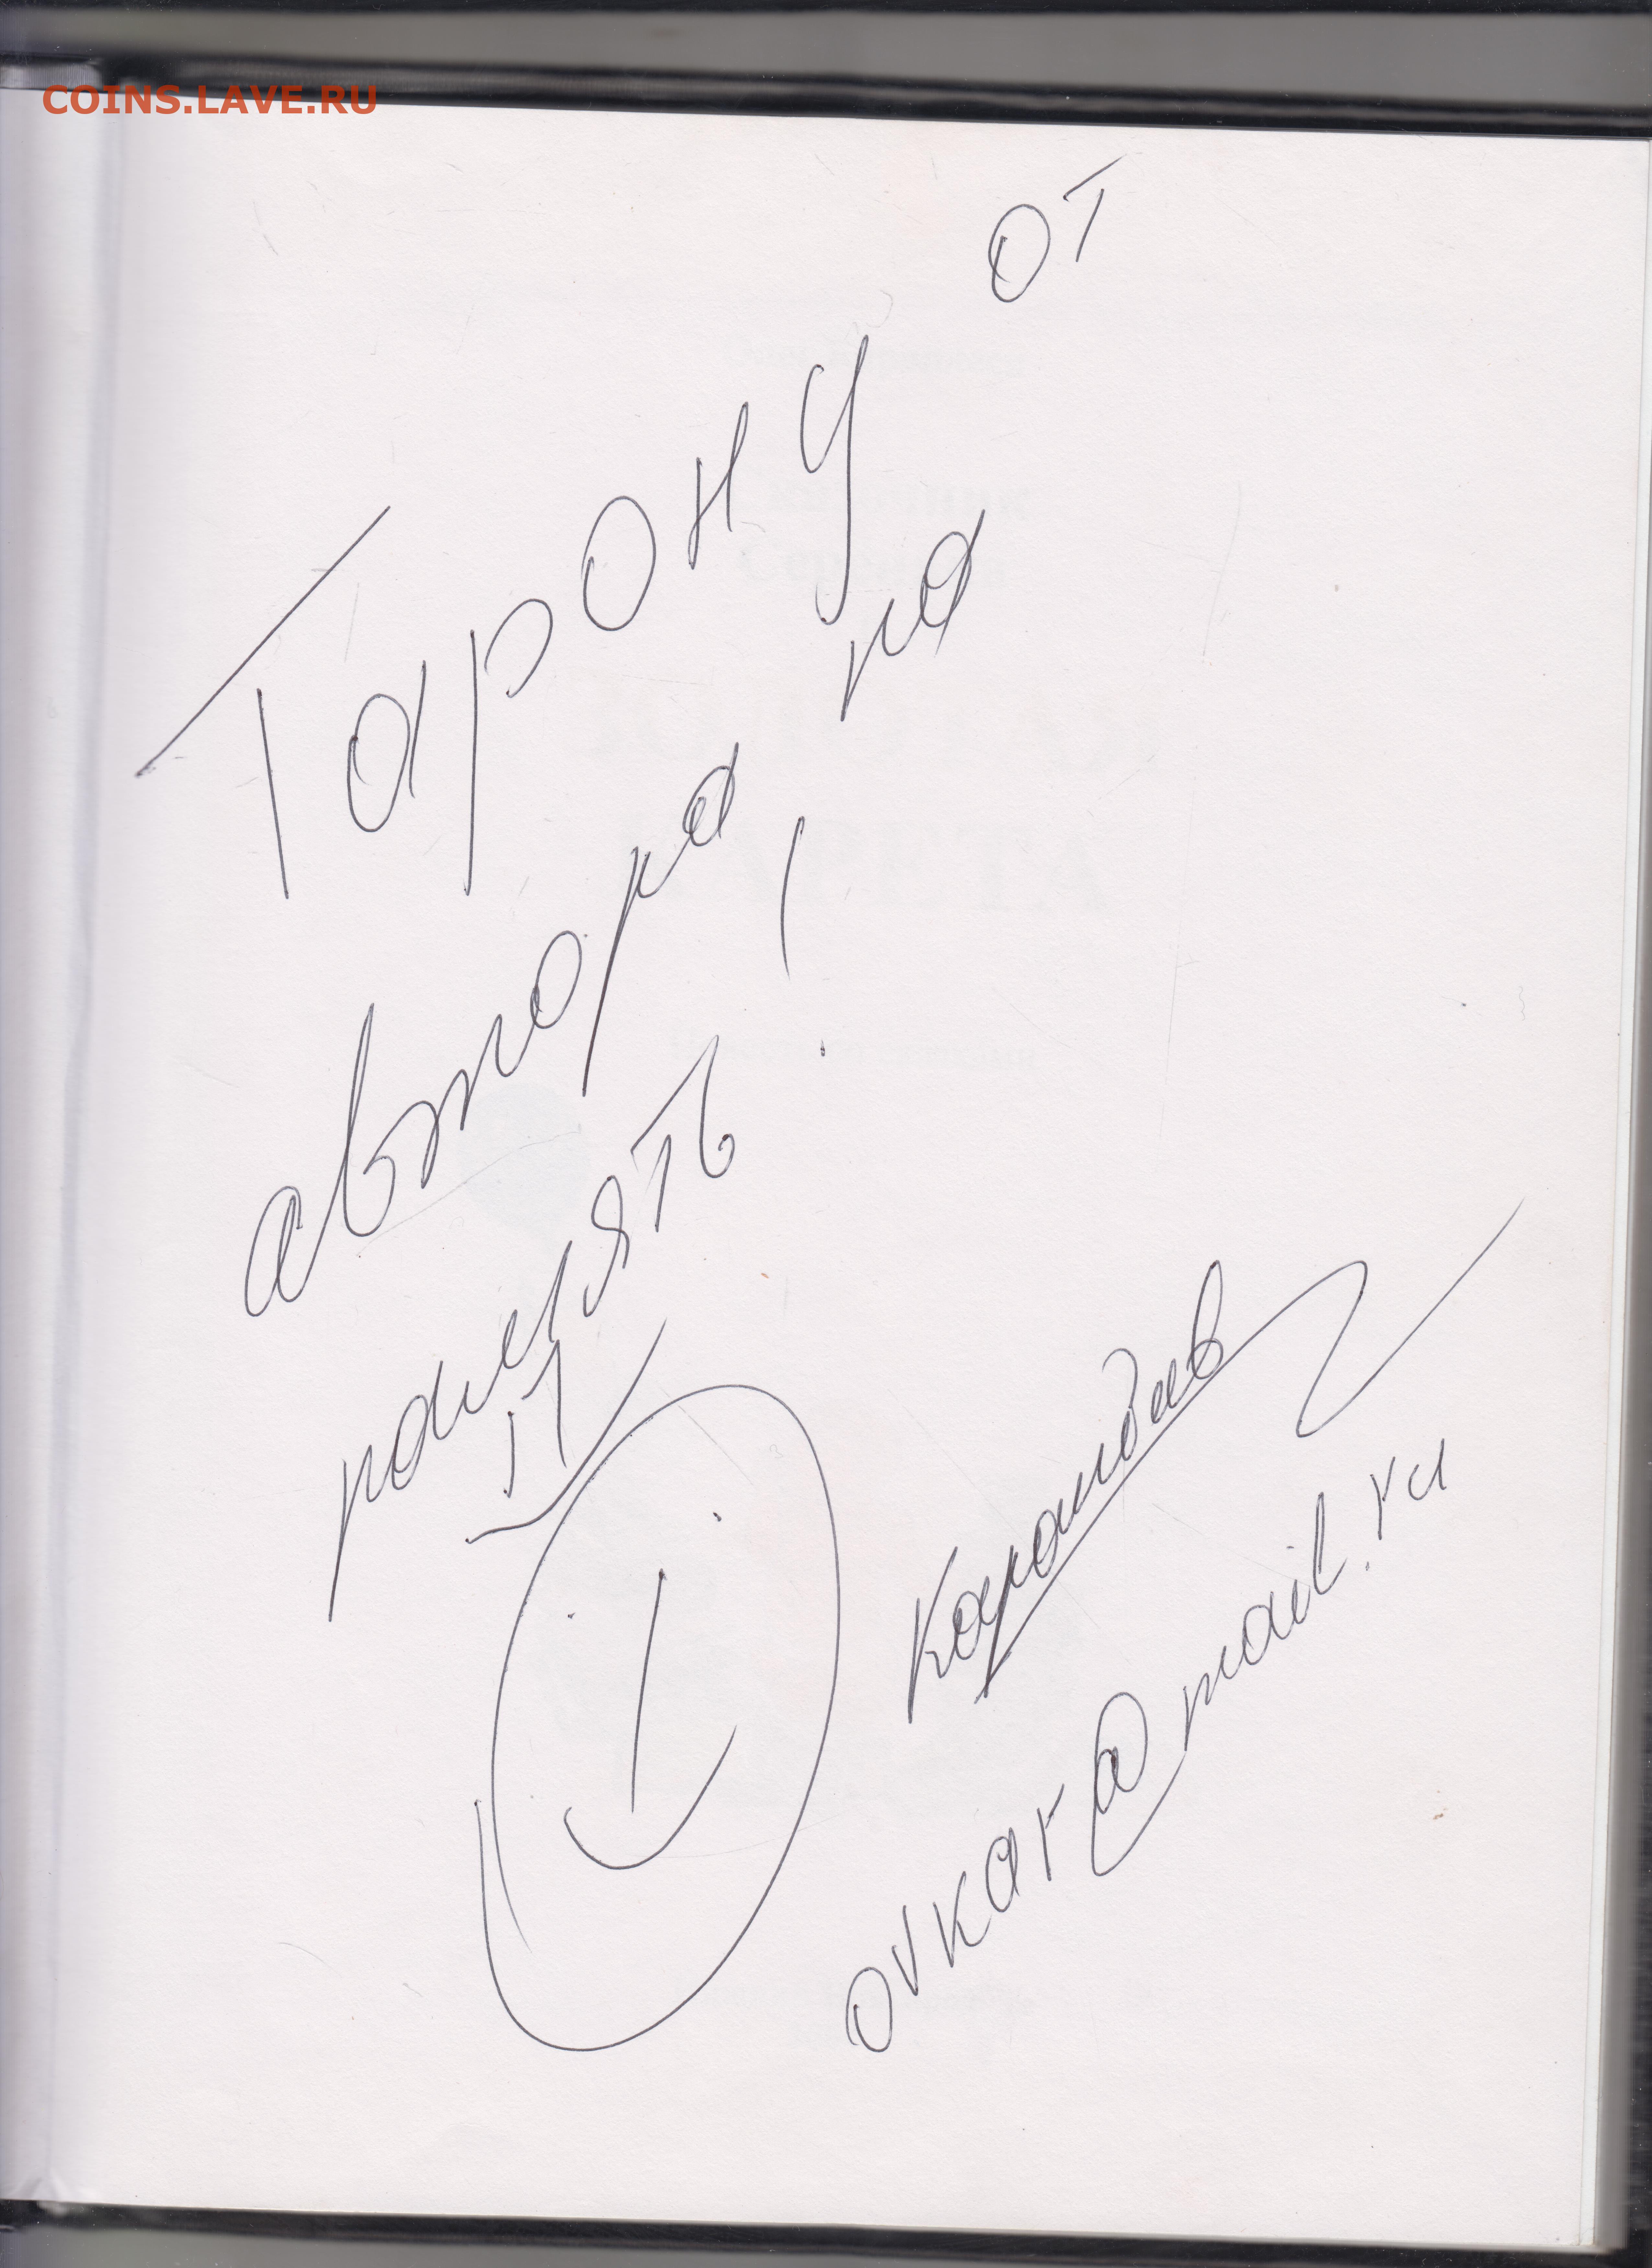 COINS.LAVE.RU
Тарону от
автора на
память!
Караидив
ovkar@mail.ru